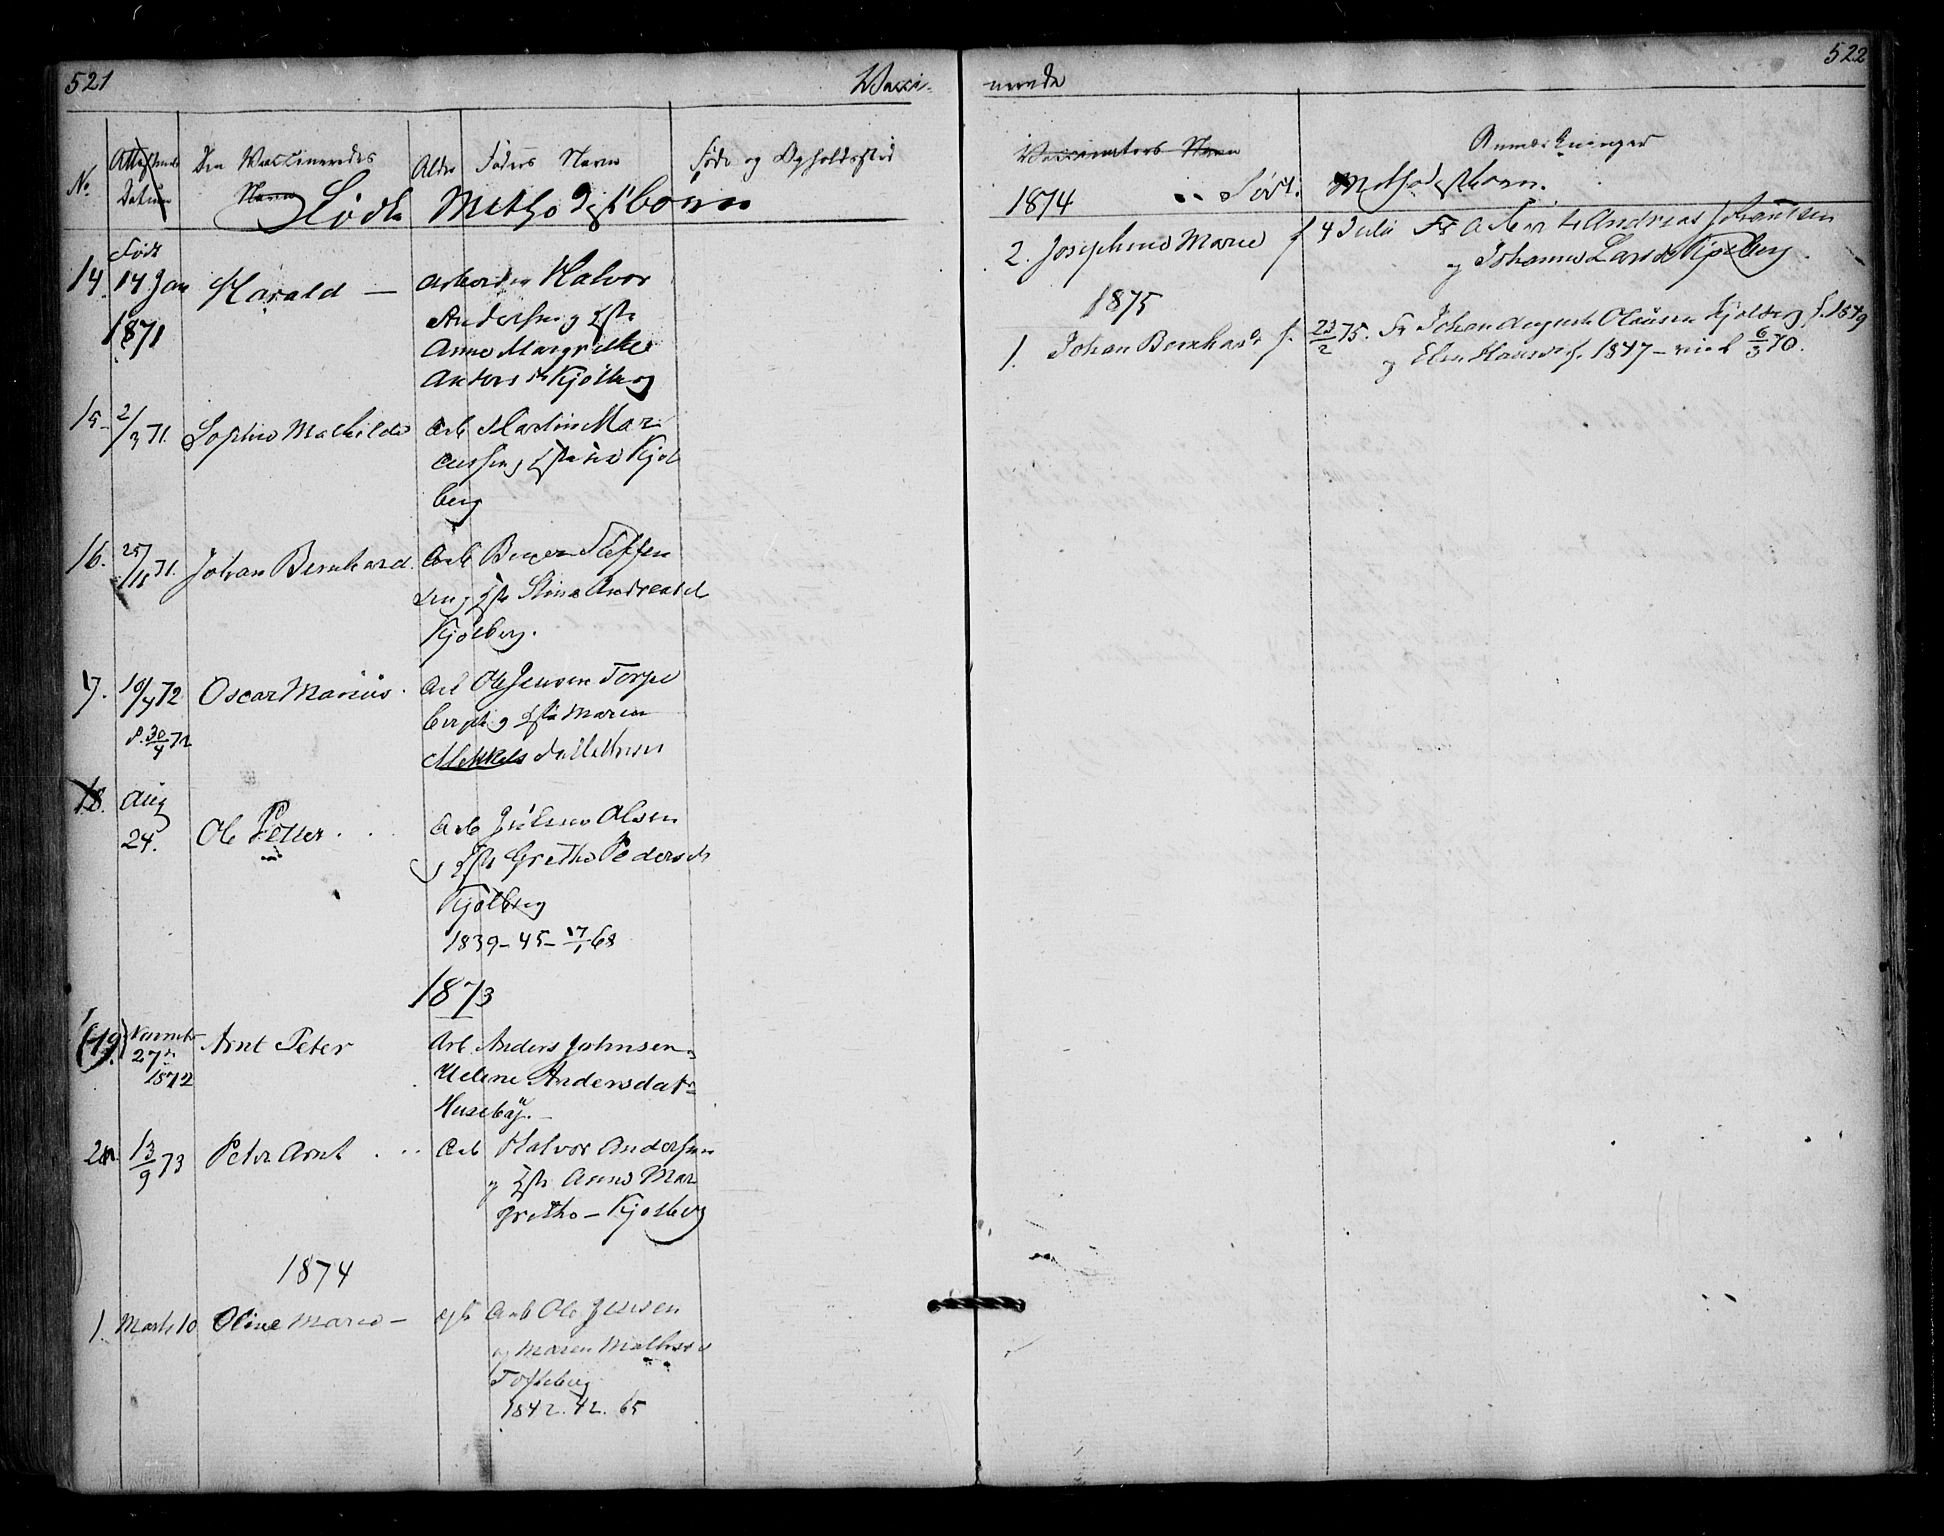 521
Vacci-
No. Attestens Datum
Den Vaccineredes Navn
Alder
Faders Navn
Føde og Opholdssted
Fødte Methodistbørn
Født
14. 14 Jan 1871 Harald — Arbeider Halvor
Andersen og Hstr
Anne Margrethe
Andersdt Kjølberg
15. 2/3 71. Sophie Mathilde Arb Martin Mar
cussen og Hstr Kjøl
berg
16. 25/11 71. Johan Bernhard. Arb Steffen
sen og Hstr Stine Andreasd
Kjølberg.
17. 10/4 72 Oscar Marius. Arb Ole Jensen Torpe
d. 30/4 72 berget og Hstr Maren
Mathesen
18. Aug 24. Ole Petter . . Arb Julius Olsen
og Hstr Grethe Pedersdt
Kjølberg
1839 - 45 - 17/1 68
1873
(19) Novmbr 27de 1872 Arnt Peter Arb. Anders Johnsen
Helene Andersdatr
Husebÿ. -
20. 13/9 73 Peter Arnt . . . Arb Halvor Andersen
og Hstr Anne Mar
grethe - Kjølberg
1874
1. Marts 10 Oline Marie - Arb Ole Jensen
og Maren Mathesd
Torpeberg
1842. 42. 65
522
nerede
Vaccinators Navn
Anmærkninger
1874 Født. Methodistbørn.
2. Josephine Marie f 4 Juli Fr Arbeir Andreas Johansen
og Johanne Larsd Kjølberg.
1875
1. Johan Bernhard f. 23/2 75. Fr Johan August Olausen Kjølberg f. 1849
og Elen Hansd f. 1847 - viet 6/3 70.